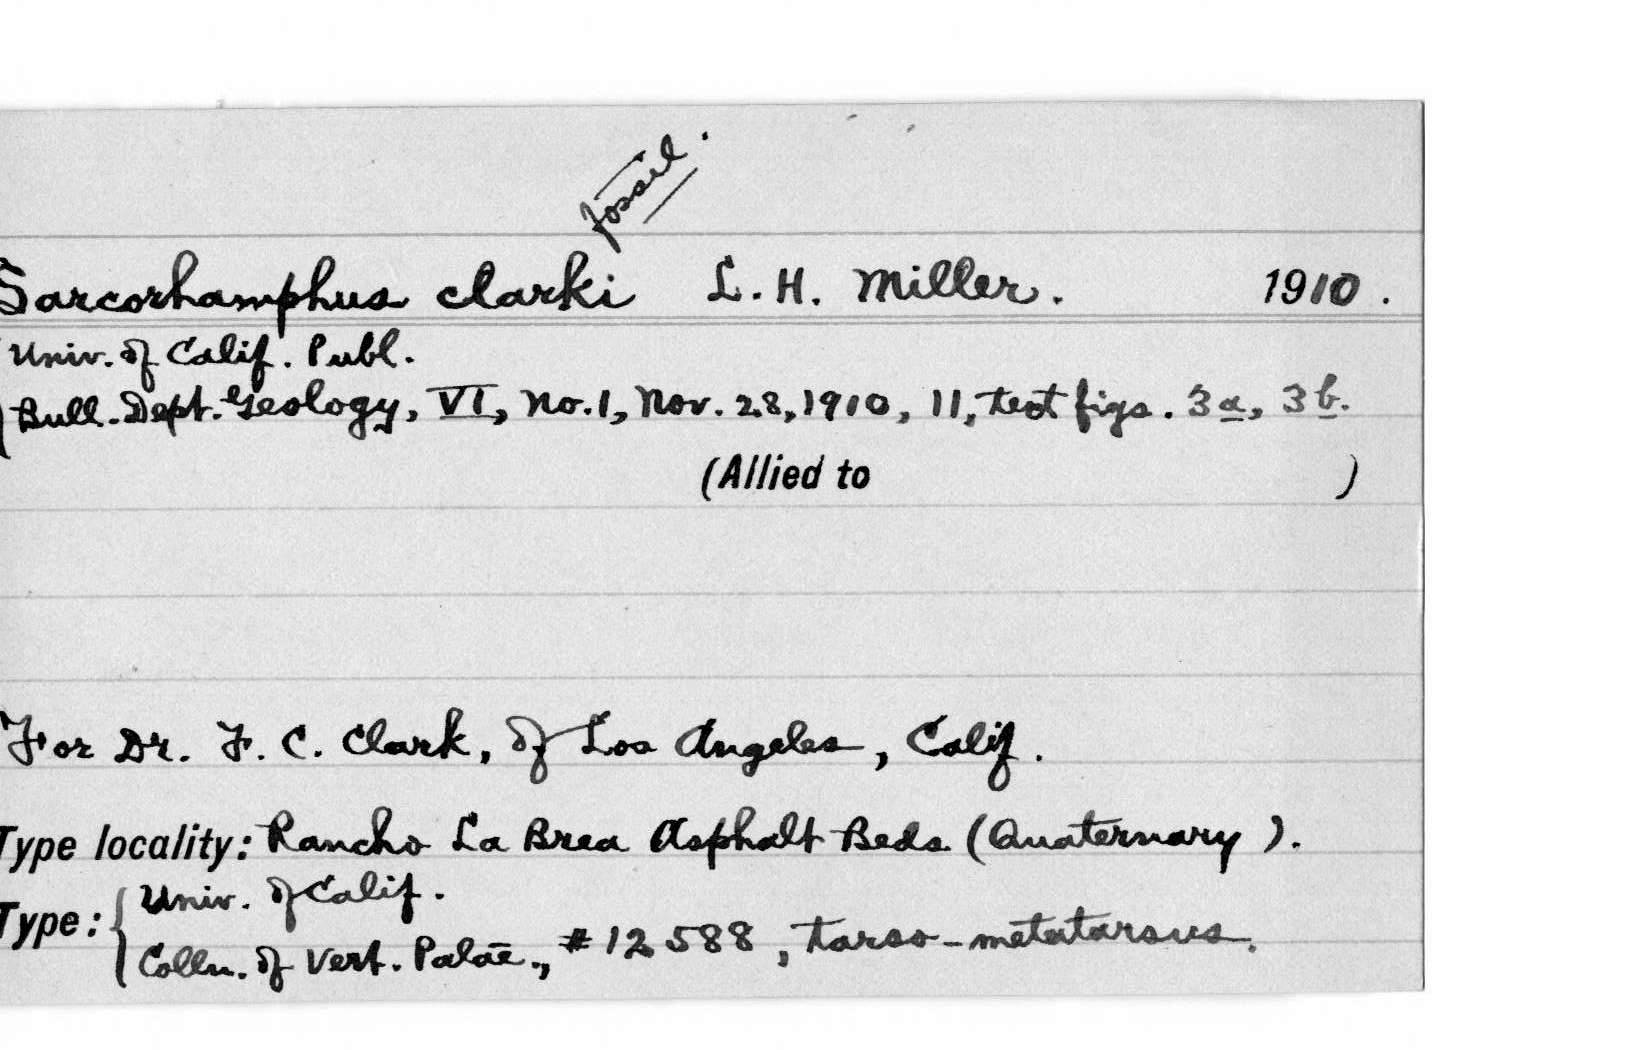 fossil.
Sarcorhamphus clarki L. H. Miller. 1910.
Univ. of Calif. Publ.
Bull. Dept. Geology, VI, No. 1, Nov. 28, 1910, 11, text figs. 3a, 3b.
(Allied to )
For Dr. F. C. Clark, of Los Angeles, Calif.
Type locality: Rancho La Brea Asphalt Beds (Quaternary).
Type: Univ. of Calif.
Colln. of Vert. Palae., #12588, tarso-metatarsus.